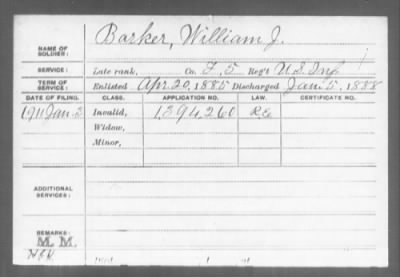 NAME OF SOLDIER: Barker, William J.
SERVICE: Late rank, Co. F, 5 Reg't U.S. Inf
TERM OF SERVICE: Enlisted Apr. 20, 1885 Discharged Jan. 5, 1888
DATE OF FILING. CLASS. APPLICATION NO. LAW. CERTIFICATE NO.
1911 Jan. 3 Invalid, 1,394,260 R.E.
Widow,
Minor,
ADDITIONAL SERVICES:
REMARKS:
M. M.